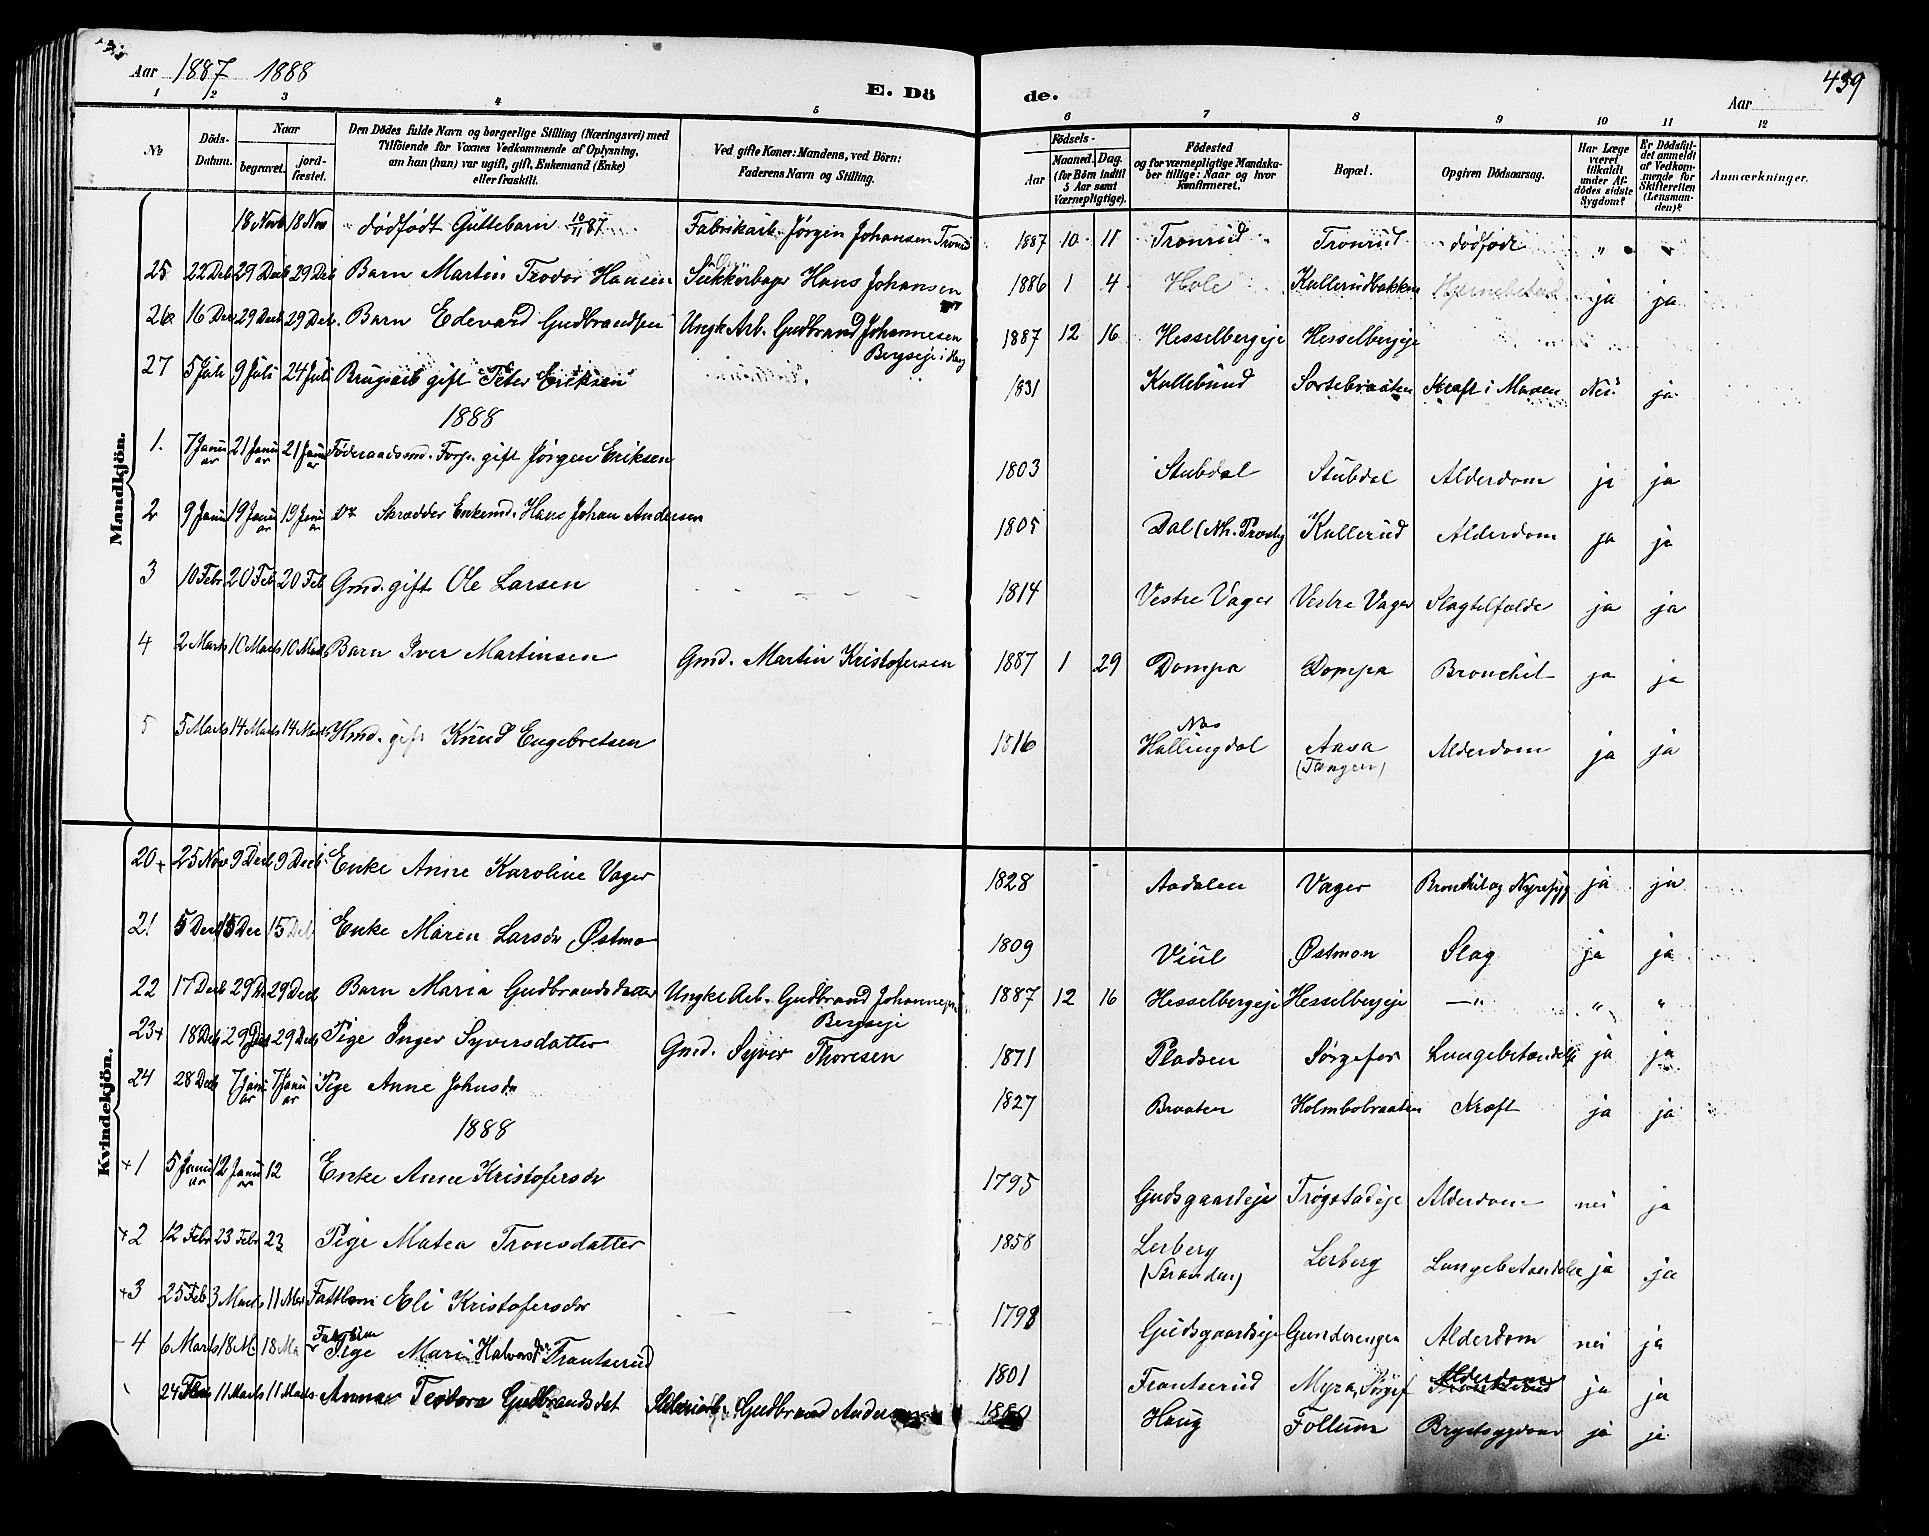 Aar 1887 1888
E. Döde.
Aar
459
1 2 3 4 5 6 7 8 9 10 11 12
No
Döds-Datum.
Naar
begravet.
jord-fæstet.
Den Dödes fulde Navn og borgerlige Stilling (Næringsvei) med
Tilföiende for Voxnes Vedkommende af Oplysning,
om han (hun) var ugift, gift, Enkemand (Enke)
eller fraskilt.
Ved gifte Koner: Mandens, ved Börn:
Faderens Navn og Stilling.
Födsels-
Aar
Maaned. Dag.
(for Börn indtil
5 Aar samt
Værnepligtige).
Födested
og for værnepligtige Mandska-
ber tillige: Naar og hvor
konfirmeret.
Bopæl.
Opgiven Dödsaarsag.
Har Læge
været
tilkaldt
under Af-
dödes sidste
Sygdom?
Er Dödsfal-
det anmeldt
af Vedkom-
mende for
Skifteretten
(Lensman-
den)?
Anmærkninger.
Mandkjön.
18 Novb 18 Nov dødfødt Guttebarn 10/11 87 Fabrikarb. Jørgen Johansen Tronrud 1887 10 11 Tronrud Tronrud dødfødt " "
25 22 Deb 29 Decb 29 Deb Barn Martin Teodor Hansen Sukkerbager Hans Johansen 1886 1 4 Hole Kullerudbakken ja ja
26 16 Dec 29 Decb 29 Deb. Barn Edevard Gudbrandsen Ungk Arb. Gudbrand Johannesen 1887 12 16 Hesselbergeje Hesselbergeje
Bergseje i Haug
27 5 Juli 9 Juli 24 Juli Brugsarb gift Peter Eriksen 1831 Kullebund Sortebraaten Kræft i Maven Nei ja
1888
1. 7 Januar 21 Januar 21 Januar Føderaadsmd. Forp. gift Jørgen Eriksen 1803 Stubdal Stubdal Alderdom ja ja
2 9 Januar 19 Januar 19 Januar Skrædder Enkemd. Hans Johan Andersen 1805 Dal (Nh. Præstg Kullerud Alderdom ja ja
3 10 Febr 20 Feb 20 Feb Gmd. gift Ole Larsen 1814 Vestre Vager Vestre Vager Slagtilfælde ja ja
4 2 Marts 10 Marts 10 Marts Barn Iver Martinsen Gmd. Martin Kristofersen 1887 1 29 Dompa Dompa Bronchit ja ja
5 5 Marts 14 Marts 14 Marts Hmd. gift Knud Engebretsen 1816 Nes Hallingdal Aasa (Tangen) Alderdom ja ja
Kvindekjön.
20+ 25 Nov 9 Decb 9 Decb Enke Anne Karoline Vager 1828 Aadalen Vager Bronchit og Nyresyg ja ja
21 5 Dec 15 Dec 15 Deb Enke Maren Larsdr Østmo 1809 Viul Østmoen Slag ja ja
22 17 Decb 29 De 29 Decb Barn Maria Gudbrandsdatter Ungkl Arb. Gudbrand Johannesen 1887 12 16 Hesselbergeje Hesselbergeje —" " "
Bergseje
23+ 18 Deb 29 Decb 29 Decb Pige Inger Syversdatter Gmd. Syver Thoresen 1871 Pladsen Sørgefos Lungebetændelse ja ja
24 28 Decb 7 Januar 7 Januar Pige Anne Johnsdr 1827 Braaten Holmbobraaten Kræft ja ja
1888
+1 5 Januar 12 Januar 12 Enke Anne Kristofersdr 1795 Gudsgaardeje Trøgstadeje Alderdom nei ja
+2 12 Febr 23 Febr 23 Pige Matea Tronsdatter 1858 Lerberg (Stranden) Lerberg Lungebetændelse ja ja
+3 25 Feb 3 Marts 11 Mar Fattlem Eli Kristofersdr 1798 Gudsgaardseje Gunderengen Alderdom nei ja
4 6 Marts 18 M 18 Ma Pige Mari Halvorsdr Frantserud 1801 Frantserud Myra, Sørgef Alderdom ja ja
24 Feb 11 Marts 11 Marts Anna Teodora Gudbrandsdat Gudbrand Anders Haug Follum Brystsygdom ja ja